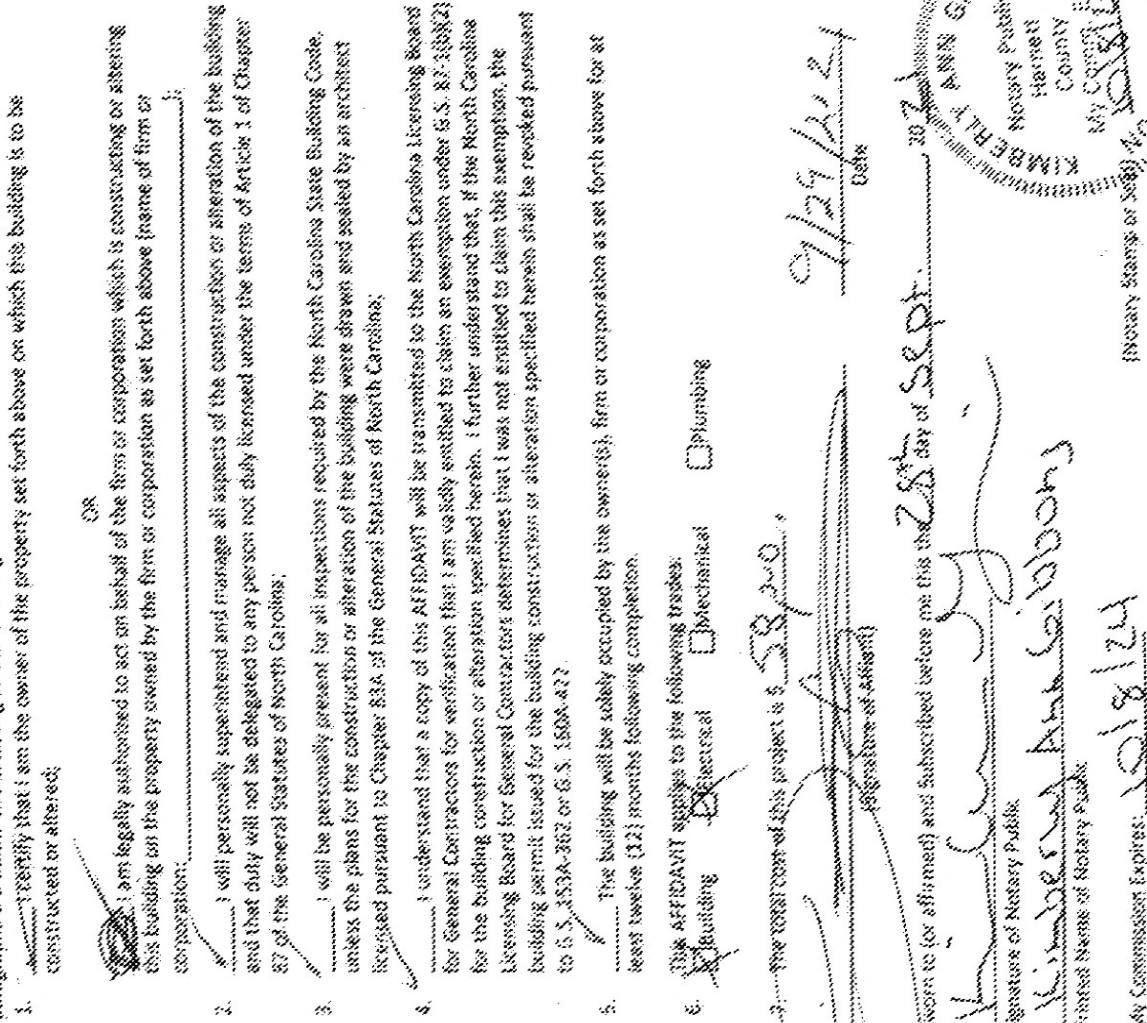 1. I certify that I am the owner of the property set forth above on which this building is to be
constructed or altered;
OR
I am legally authorized to act on behalf of the firm or corporation which is constructing or altering
this building on the property owned by the firm or corporation as set forth above (name of firm or
corporation: );
2. I will personally superintend and manage all aspects of the construction or alteration of the building
and that duty will not be delegated to any person not duly licensed under the terms of Article 1 of Chapter
87 of the General Statutes of North Carolina;
3. I will be personally present for all inspections required by the North Carolina State Building Code,
unless the plans for the construction or alteration of the building were drawn and sealed by an architect
licensed pursuant to Chapter 83A of the General Statues of North Carolina;
4. I understand that a copy of this AFFIDAVIT will be transmitted to the North Carolina Licensing Board
for General Contractors for verification that I am validly entitled to claim an exemption under G.S. 87-1(b)(2)
for the building construction or alteration specified herein. I further understand that, if the North Carolina
Licensing Board for General Contractors determines that I was not entitled to claim this exemption, the
building permit issued for the building construction or alteration specified herein shall be revoked pursuant
to G.S. 153A-362 or G.S. 160A-422.
5. The building will be solely occupied by the owner(s), firm or corporation as set forth above for at
least twelve (12) months following completion.
6. The AFFIDAVIT applies to the following trades:
Building Electrical Mechanical Plumbing
7. The total cost of this project is $
(Signature of Affiant) Date
Sworn to (or affirmed) and Subscribed before me this the 28th day of Sept. 20 21
Signature of Notary Public
Kimberly Ann Gibbons
Printed Name of Notary Public
My Commission Expires:
(Notary Stamp or Seal)
KIMBERLY ANN
Notary Public
Harnett
County
My Comm